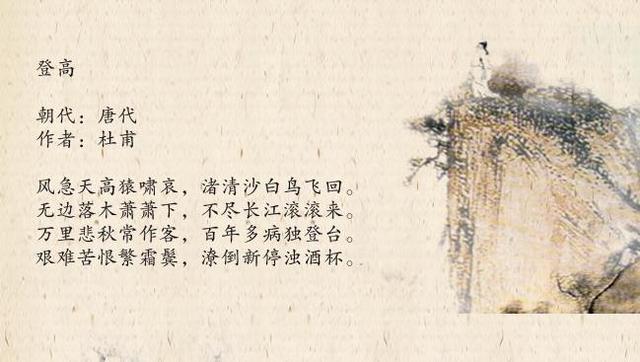 登高
朝代：唐代
作者：杜甫
风急天高猿啸哀，渚清沙白鸟飞回。
无边落木萧萧下，不尽长江滚滚来。
万里悲秋常作客，百年多病独登台。
艰难苦恨繁霜鬓，潦倒新停浊酒杯。